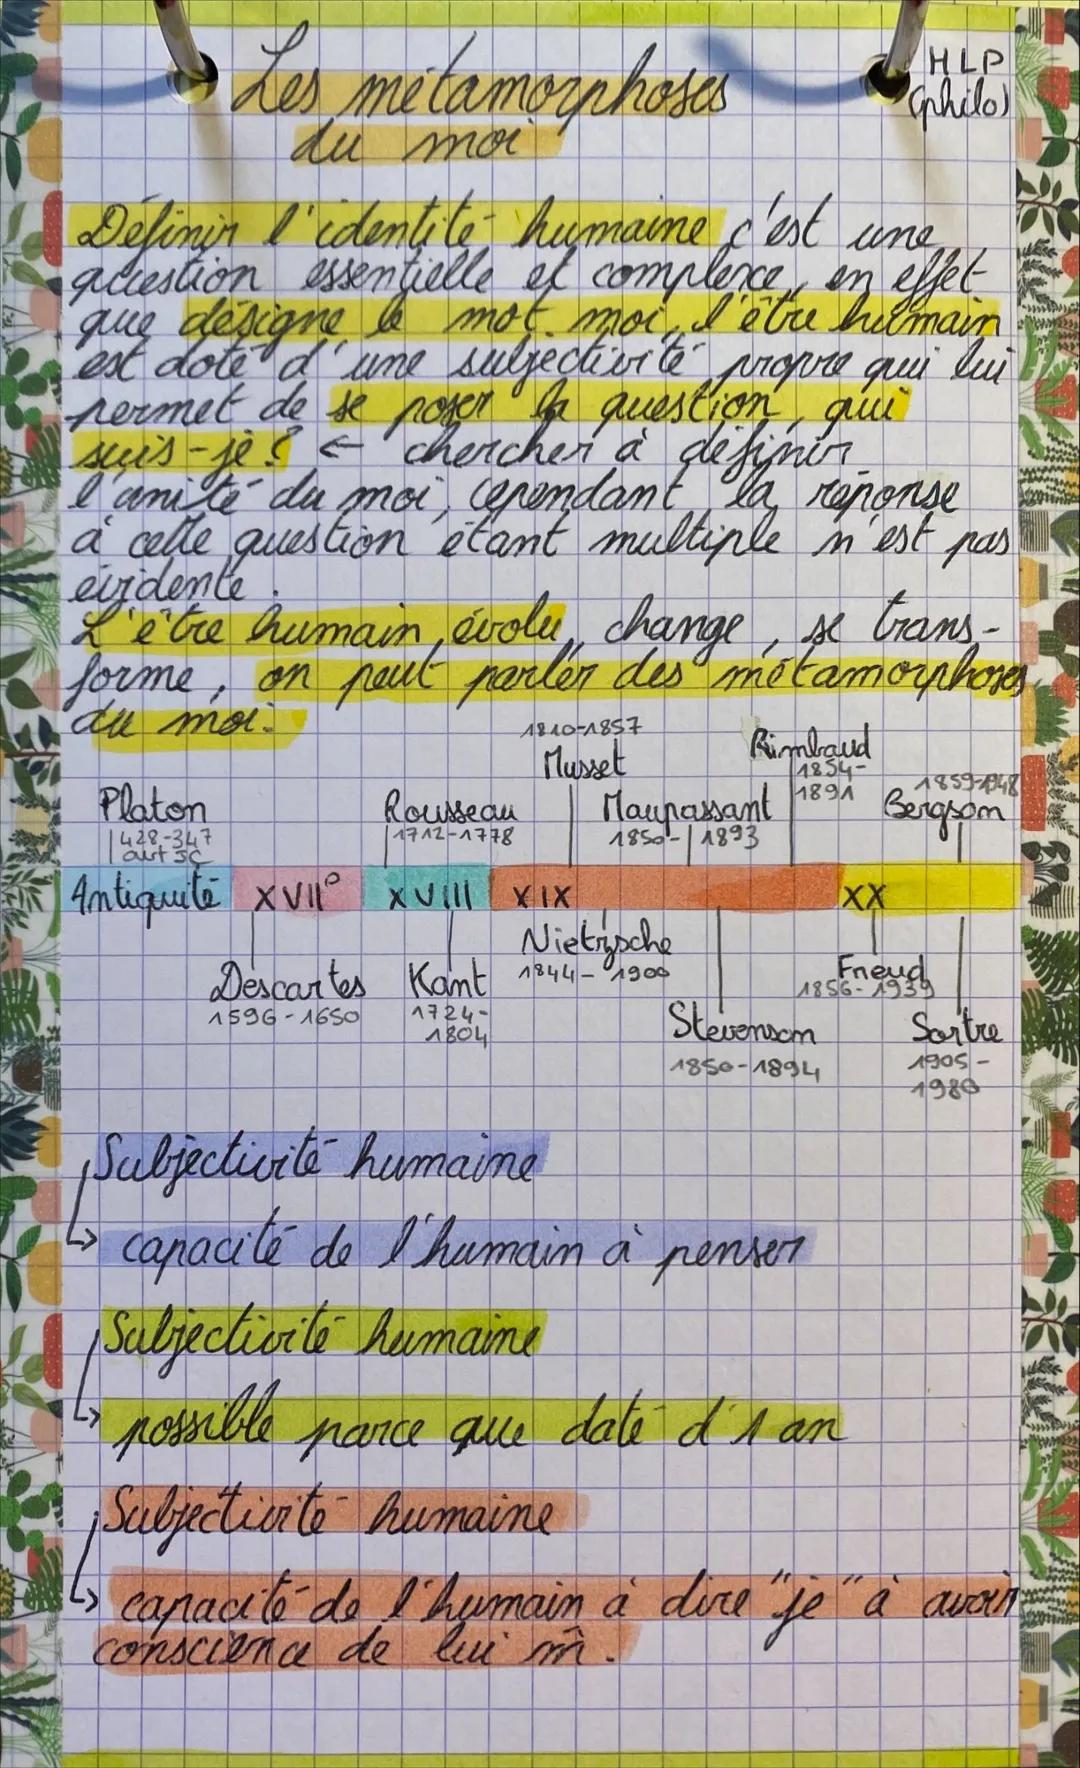 Les métamorphoses
du moi
HLP
(philo)
Définir l'identité humaine c'est une
question essentielle et complexe, en effet
que désigne le mot moi, l'être humain
est doté d'une subjectivité propre qui lui
permet de se poser la question, qui
suis-je? ← chercher à définir
l'unité du moi, cependant la réponse
à cette question étant multiple n'est pas
évidente.
L'être humain, évolu, change, se trans-
forme, on peut parler des métamorphoses
du moi.
1810-1857
Musset
Rimbaud
1854-
1891
1859-1948
Bergson
Platon
428-347
avt JC
Rousseau
1712-1778
Maupassant
1850-1893
Antiquité XVII° XVIII XIX XX
Descartes
1596-1650
Kant
1724-
1804
Nietzsche
1844-1900
Stevenson
1850-1894
Freud
1856-1939
Sartre
1905-
1980
Subjectivité humaine
↳ capacité de l'humain à penser
Subjectivité humaine
↳ possible parce que daté d'1 an
Subjectivité humaine
↳ capacité de l'humain à dire "je" à avoir
conscience de lui m̂.